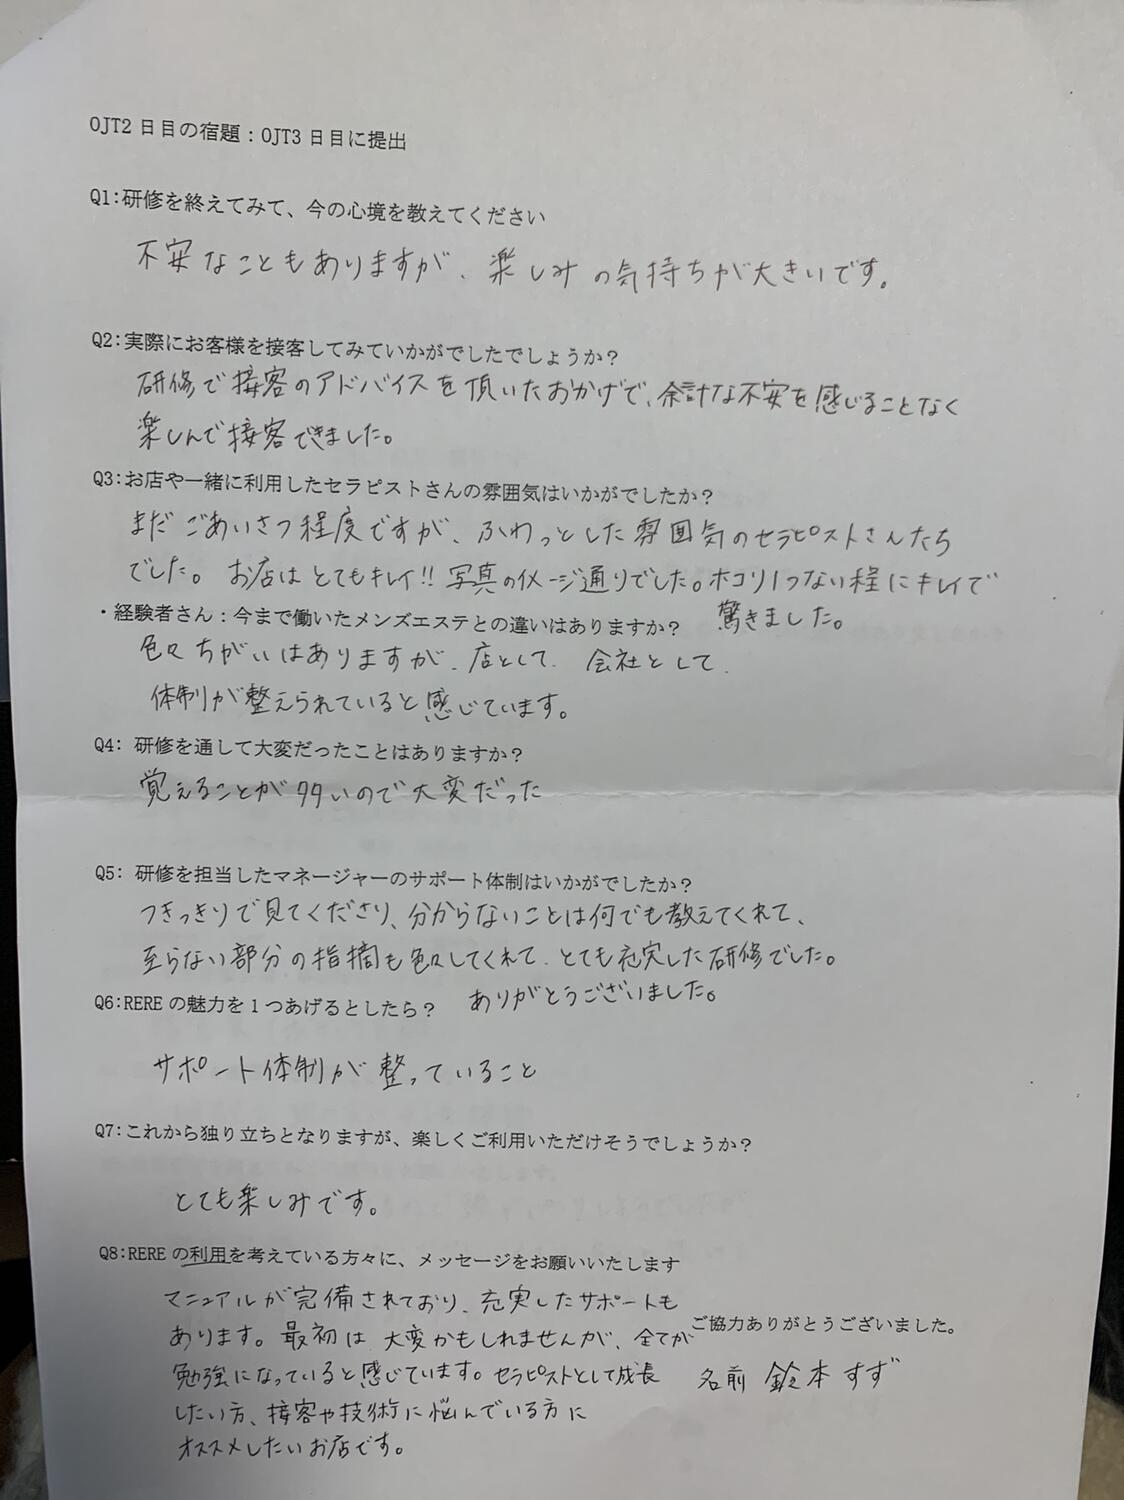 OJT2日目の宿題：OJT3日目に提出
Q1:研修を終えてみて、今の心境を教えてください
不安なこともありますが、楽しみの気持ちが大きいです。
Q2:実際にお客様を接客してみていかがでしたでしょうか？
研修で接客のアドバイスを頂いたおかげで、余計な不安を感じることなく
楽しんで接客できました。
Q3:お店や一緒に利用したセラピストさんの雰囲気はいかがでしたか？
まだごあいさつ程度ですが、ふわっとした雰囲気のセラピストさんたち
でした。お店はとてもキレイ!!写真のイメージ通りでした。ホコリ1つない程にキレイで
驚きました。
・経験者さん：今まで働いたメンズエステとの違いはありますか？
色々ちがいはありますが、店として、会社として、
体制が整えられていると感じています。
Q4: 研修を通して大変だったことはありますか？
覚えることが多いので大変だった
Q5: 研修を担当したマネージャーのサポート体制はいかがでしたか？
つきっきりで見てくださり、分からないことは何でも教えてくれて、
至らない部分の指摘も色々してくれて、とても充実した研修でした。
ありがとうございました。
Q6:REREの魅力を1つあげるとしたら？
サポート体制が整っていること
Q7:これから独り立ちとなりますが、楽しくご利用いただけそうでしょうか？
とても楽しみです。
Q8:REREの利用を考えている方々に、メッセージをお願いいたします
マニュアルが完備されており、充実したサポートも
あります。最初は大変かもしれませんが、全てが
勉強になっていると感じています。セラピストとして成長
したい方、接客や技術に悩んでいる方に
オススメしたいお店です。
ご協力ありがとうございました。
名前 鈴本すず